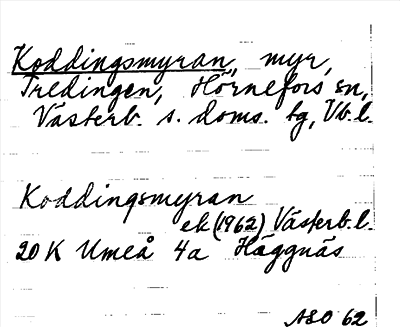 Koddingsmyran, myr,
Tredingen, Hörnefors sn,
Västerb. s. doms. tg, Vb.l.
Koddingsmyran
ek (1962) Västerb.l.
20 K Umeå 4a Häggnäs
ASO 62